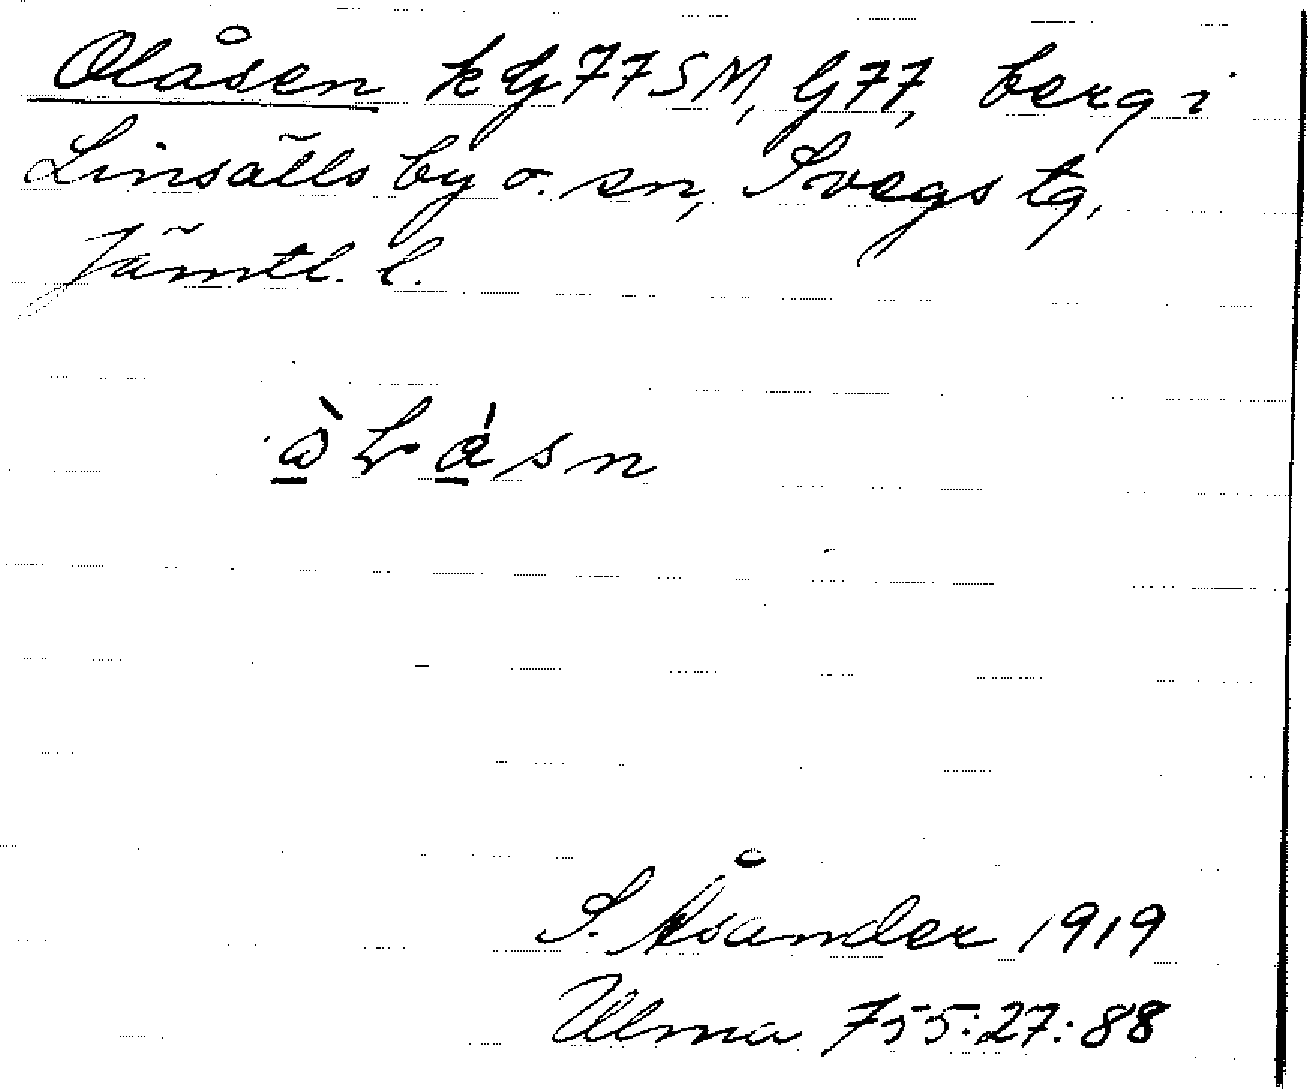 Olåsen k G77SM, G77, berg i
Linsälls by o. sn, Svegs tg,
Jämtl. l.
S. Åsander 1919
Ulma 755:27:88